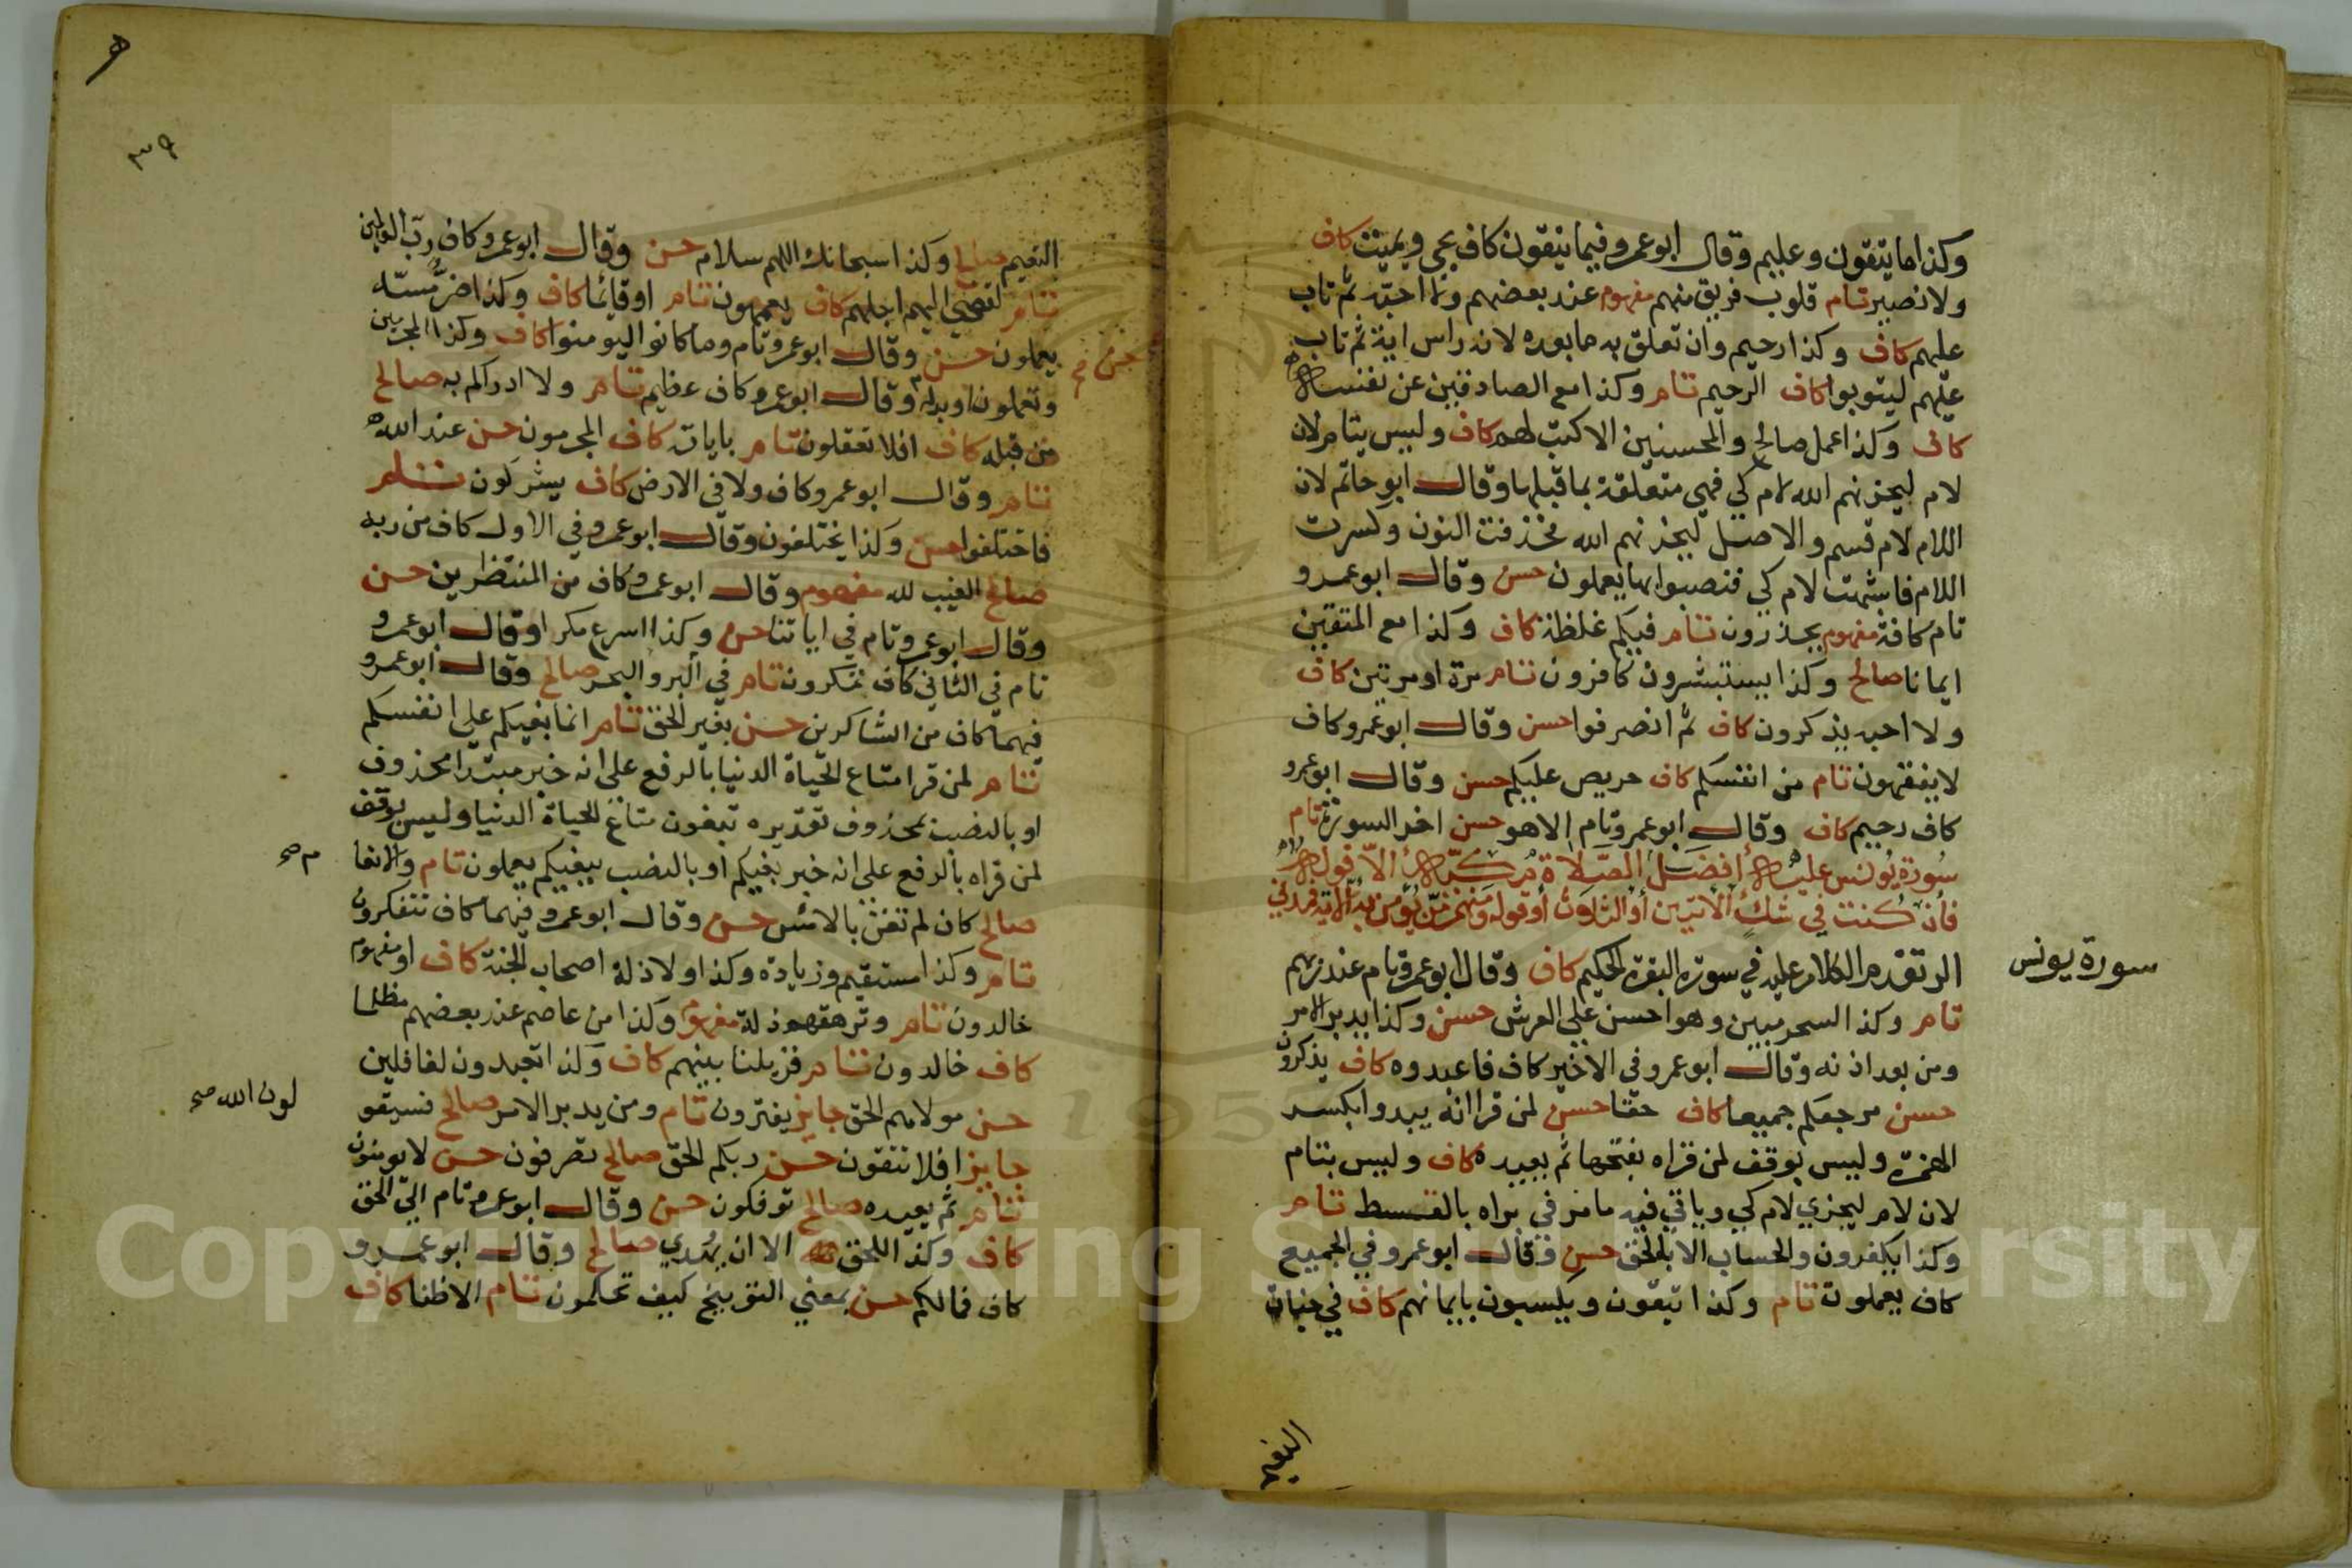 وكذا ما يتقون وعليم وقال ابو عمرو فيما يتقون كاف يحي ويميت كاف
ولا نصير تام قلوب فريق منهم مفهوم عند بعضهم ولا احبه ثم تاب
عليهم كاف وكذا رحيم وان تعلق به ما بعده لانه راس اية ثم تاب
عليهم ليتوبوا كاف الرحيم تام وكذا مع الصادقين عن نفسه
كاف وكذا عمل صالح والمحسنين الا كتب لهم كاف وليس بتام لان
لام ليجزيهم الله لام كي فهي متعلقة بما قبلها وقال ابو حاتم لان
اللام لام قسم والاصل ليجزينهم الله فحذفت النون وكسرت
اللام فاشبهت لام كي فنصبوا بها يعملون حسن وقال ابو عمرو
تام كافة مفهوم يحذرون تام فيكم غلظة كاف وكذا مع المتقين
ايمانا صالح وكذا يستبشرون كافرون تام مرة او مرتين كاف
ولا احبه يذكرون كاف ثم انصرفوا حسن وقال ابو عمرو كاف
لا يفقهون تام من انفسكم كاف حريص عليكم حسن وقال ابو عمرو
كاف رحيم كاف وقال ابو عمرو تام الا هو حسن اخر السورة تام
سورة يونس عليه أفضل الصلاة مكية الا قوله
فان كنت في شك الآيتين أو الثلاث أو قوله ومنهم من يؤمن به الآية فمدني
سورة يونس
الر تقدم الكلام عليه في سورة البقرة الحكيم كاف وقال ابو عمرو تام عند ربهم
تام وكذا لسحر مبين وهو احسن علي العرش حسن وكذا يدبر الامر
ومن بعد اذنه وقال ابو عمرو في الاخير كاف فاعبدوه كاف يذكرون
حسن مرجعكم جميعا كاف حقا حسن لمن قرا انه يبدوا بكسر
الهمزة وليس بوقف لمن قراه بفتحها ثم يعيده كاف وليس بتام
لان لام ليجزي لام كي وياتي فيه ما مر في براه بالقسط تام
وكذا يكفرون والحساب الا بالحق حسن وقال ابو عمرو في الجميع
كاف يعملون تام وكذا يتقون ويكسبون بايمانهم كاف في جنات
النعيم
٣٩
النعيم صالح وكذا سبحانك اللهم سلام حسن وقال ابو عمرو كاف رب العالمين
تام لقضي اليهم اجلهم كاف يعمهون تام او قائما كاف وكذا ضر مسه
يعملون حسن وقال ابو عمرو تام وما كانوا ليومنوا كاف وكذا المجرمين
حسن صح
وتعملون او بدله وقال ابو عمرو كاف عظيم تام ولا ادراكم به صالح
من قبله كاف افلا تعقلون تام باياته كاف المجرمون حسن عند الله
تام وقال ابو عمرو كاف ولا في الارض كاف يشركون تام
فاختلفوا حسن وكذا يختلفون وقال ابو عمرو في الاول كاف من ربه
صالح الغيب لله مفهوم وقال ابو عمرو كاف من المنتظرين حسن
وقال ابو عمرو تام في اياتنا حسن وكذا اسرع مكرا وقال ابو عمرو
تام في الثاني كاف تمكرون تام في البر والبحر صالح وقال ابو عمرو
فيهما كاف من الشاكرين حسن بغير الحق تام انما بغيكم على انفسكم
تام لمن قرا متاع الحياة الدنيا بالرفع على انه خبر مبتدا محذوف
او بالنصب بمحذوف تقديره تبغون متاع الحياة الدنيا وليس بوقف
لمن قراه بالرفع على انه خبر بغيكم او بالنصب ببغيكم يعملون تام والانعا
م صح
صالح كان لم تغن بالامس حسن وقال ابو عمرو فيهما كاف تتفكرون
تام وكذا مستقيم وزيادة وكذا ولا ذلة اصحاب الجنة كاف او مفهوم
خالدون تام وترهقهم ذلة مفهوم وكذا من عاصم عند بعضهم مظلما
كاف خالدون تام فزيلنا بينهم كاف وكذا تعبدون لغافلين
حسن مولاهم الحق جايز يفترون تام ومن يدبر الامر صالح فسيقو
لون الله صح
جايز افلا تتقون حسن ربكم الحق صالح تصرفون حسن لا يومنون
تام ثم يعيده صالح توفكون حسن وقال ابو عمرو تام الي الحق
كاف وكذا للحق الا ان يهدي صالح وقال ابو عمرو
كاف فمالكم حسن بمعني التوبيخ كيف تحكمون تام الا ظنا كاف
Copyright © King Saud University
195